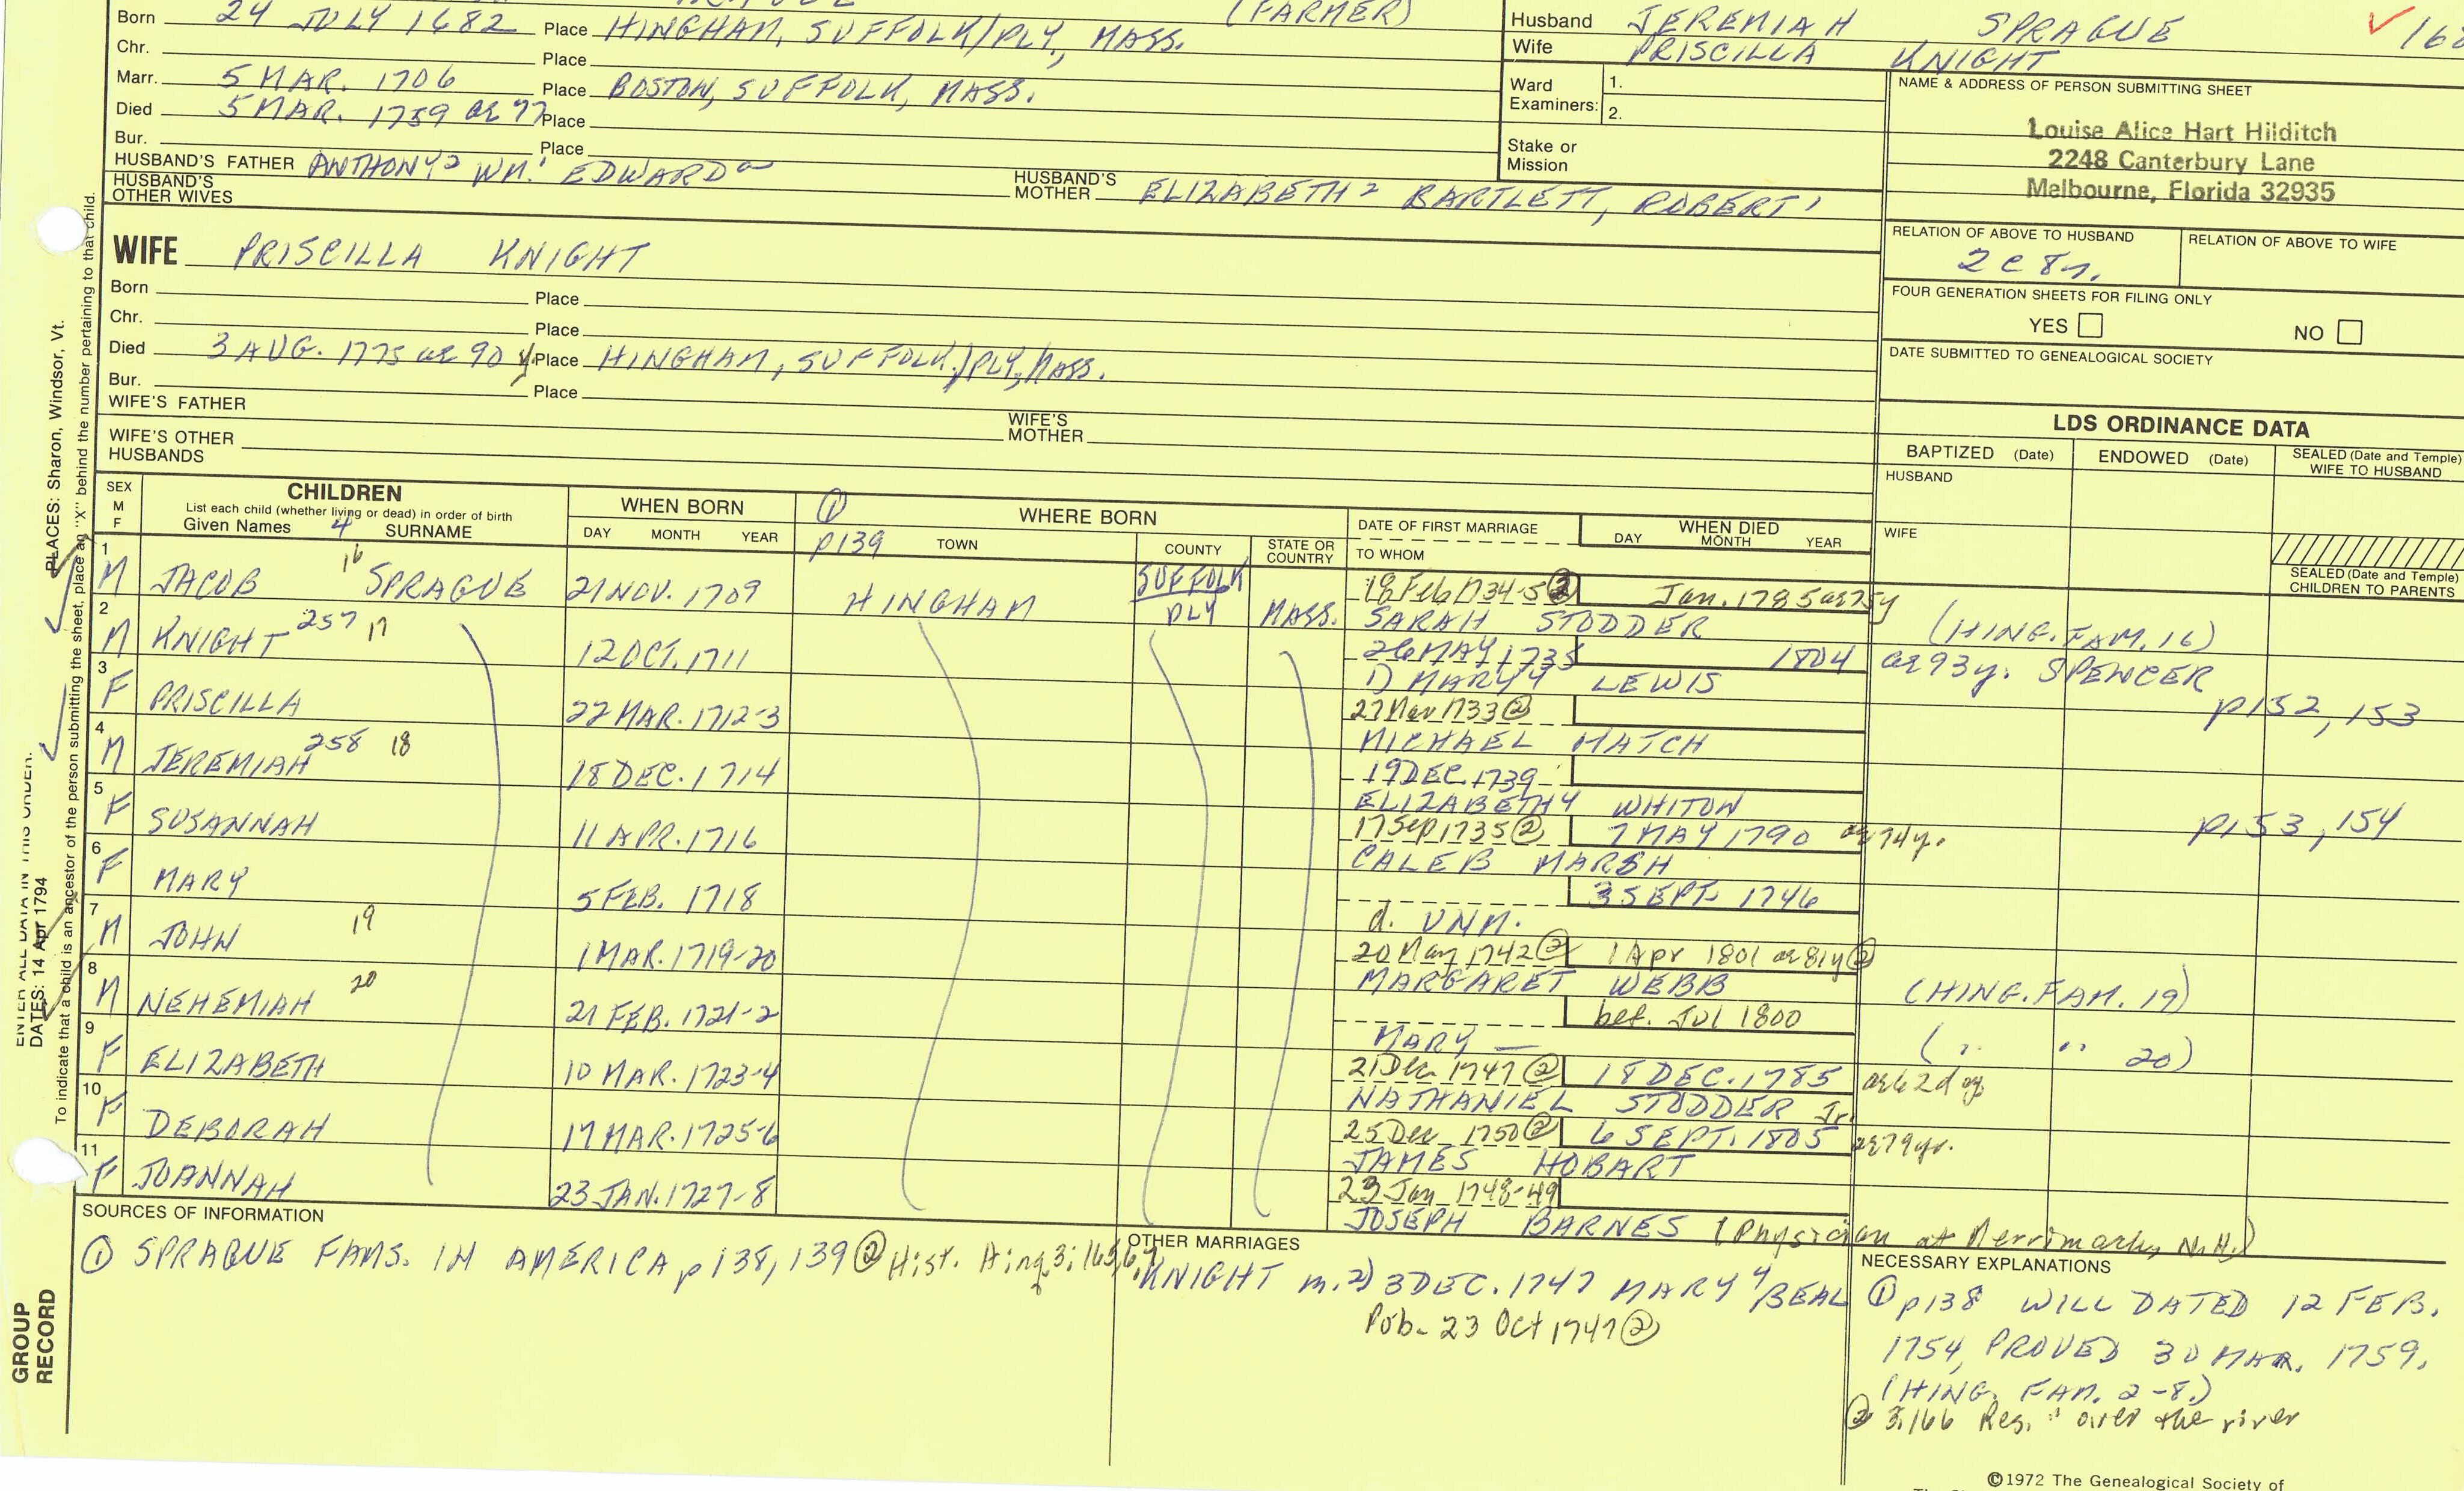 (FARMER)
Born 24 JULY 1682 Place HINGHAM, SUFFOLK/PLY, MASS.
Chr. Place
Marr. 5 MAR. 1706 Place BOSTON, SUFFOLK, MASS.
Died 5 MAR. 1759 ae 77 Place
Bur. Place
HUSBAND'S FATHER ANTHONY2 WM.1 EDWARDa
HUSBAND'S MOTHER ELIZABETH2 BARTLETT, ROBERT1
HUSBAND'S OTHER WIVES
Husband JEREMIAH SPRAGUE ✓168
Wife PRISCILLA KNIGHT
Ward Examiners: 1.
2.
Stake or Mission
NAME & ADDRESS OF PERSON SUBMITTING SHEET
Louise Alice Hart Hilditch
2248 Canterbury Lane
Melbourne, Florida 32935
RELATION OF ABOVE TO HUSBAND RELATION OF ABOVE TO WIFE
2c8r.
FOUR GENERATION SHEETS FOR FILING ONLY
YES NO
DATE SUBMITTED TO GENEALOGICAL SOCIETY
WIFE PRISCILLA KNIGHT
Born Place
Chr. Place
Died 3 AUG. 1775 ae 90 y. Place HINGHAM, SUFFOLK/PLY, MASS.
Bur. Place
WIFE'S FATHER WIFE'S MOTHER
WIFE'S OTHER HUSBANDS
LDS ORDINANCE DATA
BAPTIZED (Date) ENDOWED (Date) SEALED (Date and Temple) WIFE TO HUSBAND
HUSBAND
WIFE
SEALED (Date and Temple) CHILDREN TO PARENTS
SEX M F
CHILDREN
List each child (whether living or dead) in order of birth
Given Names 4 SURNAME
WHEN BORN
DAY MONTH YEAR
① p139
WHERE BORN
TOWN COUNTY STATE OR COUNTRY
DATE OF FIRST MARRIAGE
TO WHOM
WHEN DIED
DAY MONTH YEAR
1 M JACOB 16 SPRAGUE 21 NOV. 1709 HINGHAM SUFFOLK PLY MASS. 18 Feb 1734-5 ② Jan. 1785 ae 75y
SARAH STODDER (HING. FAM. 16)
2 M KNIGHT 257 17 12 OCT. 1711 26 MAY 1735 1804 ae 93y. SPENCER
1) MARY4 LEWIS p152, 153
3 F PRISCILLA 22 MAR. 1712-3 27 Nov 1733 ②
MICHAEL HATCH
4 M JEREMIAH 258 18 18 DEC. 1714 19 DEC. 1739
ELIZABETH4 WHITON p153, 154
5 F SUSANNAH 11 APR. 1716 17 Sep 1735 ② 7 MAY 1790 ae 74y.
CALEB MARSH
6 F MARY 5 FEB. 1718 3 SEPT. 1746
d. UNM.
7 M JOHN 19 1 MAR. 1719-20 20 May 1742 ② 1 Apr 1801 ae 81y ②
MARGARET WEBB (HING. FAM. 19)
8 M NEHEMIAH 20 21 FEB. 1721-2 bef. Jul 1800
MARY — ( " " 20)
9 F ELIZABETH 10 MAR. 1723-4 21 Dec 1747 ② 18 DEC. 1785
NATHANIEL STODDER Jr.
10 F DEBORAH 17 MAR. 1725-6 25 Dec 1750 ② 6 SEPT. 1805 ae 79 yr.
JAMES HOBART
11 F JOANNAH 23 JAN. 1727-8 23 Jan 1748-49
JOSEPH BARNES (Physician at Merrimack, N.H.)
SOURCES OF INFORMATION
① SPRAGUE FAMS. IN AMERICA p 138, 139 ② Hist. Hing. 3:165,6,
OTHER MARRIAGES
KNIGHT m. 2) 3 DEC. 1747 MARY4 BEAL
Pub. 23 Oct 1747 ②
NECESSARY EXPLANATIONS
① p138 WILL DATED 12 FEB.
1754, PROVED 30 MAR. 1759.
(HING. FAM. 2-8.)
② 3:166 Res. " over the river
©1972 The Genealogical Society of
ENTER ALL DATA IN THIS ORDER:
DATES: 14 Apr 1794
PLACES: Sharon, Windsor, Vt.
To indicate that a child is an ancestor of the person submitting the sheet, place an "X" behind the number pertaining to that child.
GROUP RECORD